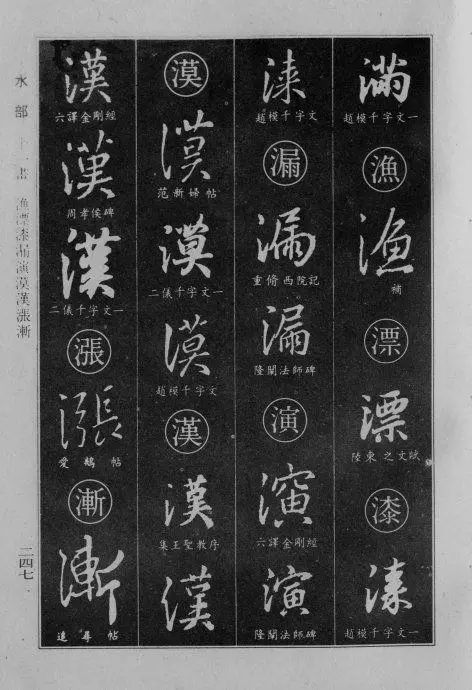 水部 十一畫 漁漂漆漏演漠漢漲漸
二四七
滿
趙模千字文一
漁
漁
補
漂
漂
陸柬之文賦
漆
漆
趙模千字文一
漆
趙模千字文
漏
漏
重脩西院記
漏
隆闡法師碑
演
演
六譯金剛經
演
隆闡法師碑
漠
漠
范新婦帖
漠
二儀千字文一
漠
趙模千字文
漢
漢
集王聖教序
漢
漢
六譯金剛經
漢
周孝侯碑
漢
二儀千字文一
漲
漲
愛鵝帖
漸
漸
追尋帖